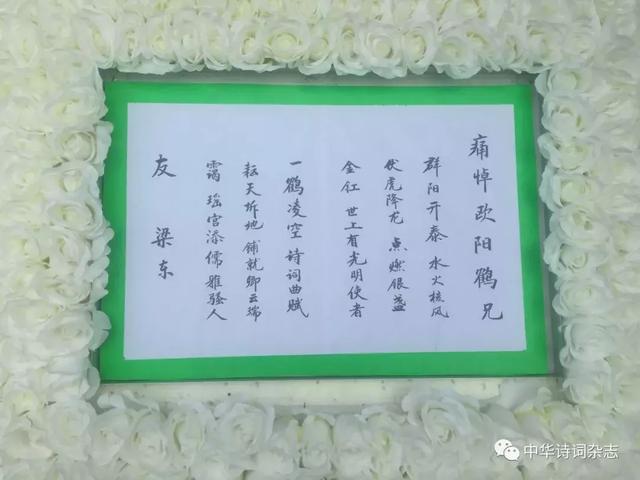 痛悼欧阳鹤兄
群阳开泰 水火核风
伏虎降龙 点燃银盏
金釭 世上有光明使者
一鹤凌空 诗词曲赋
耘天圻地 铺就卿云瑞
霭 瑶宫添儒雅骚人
友 梁东
中华诗词杂志